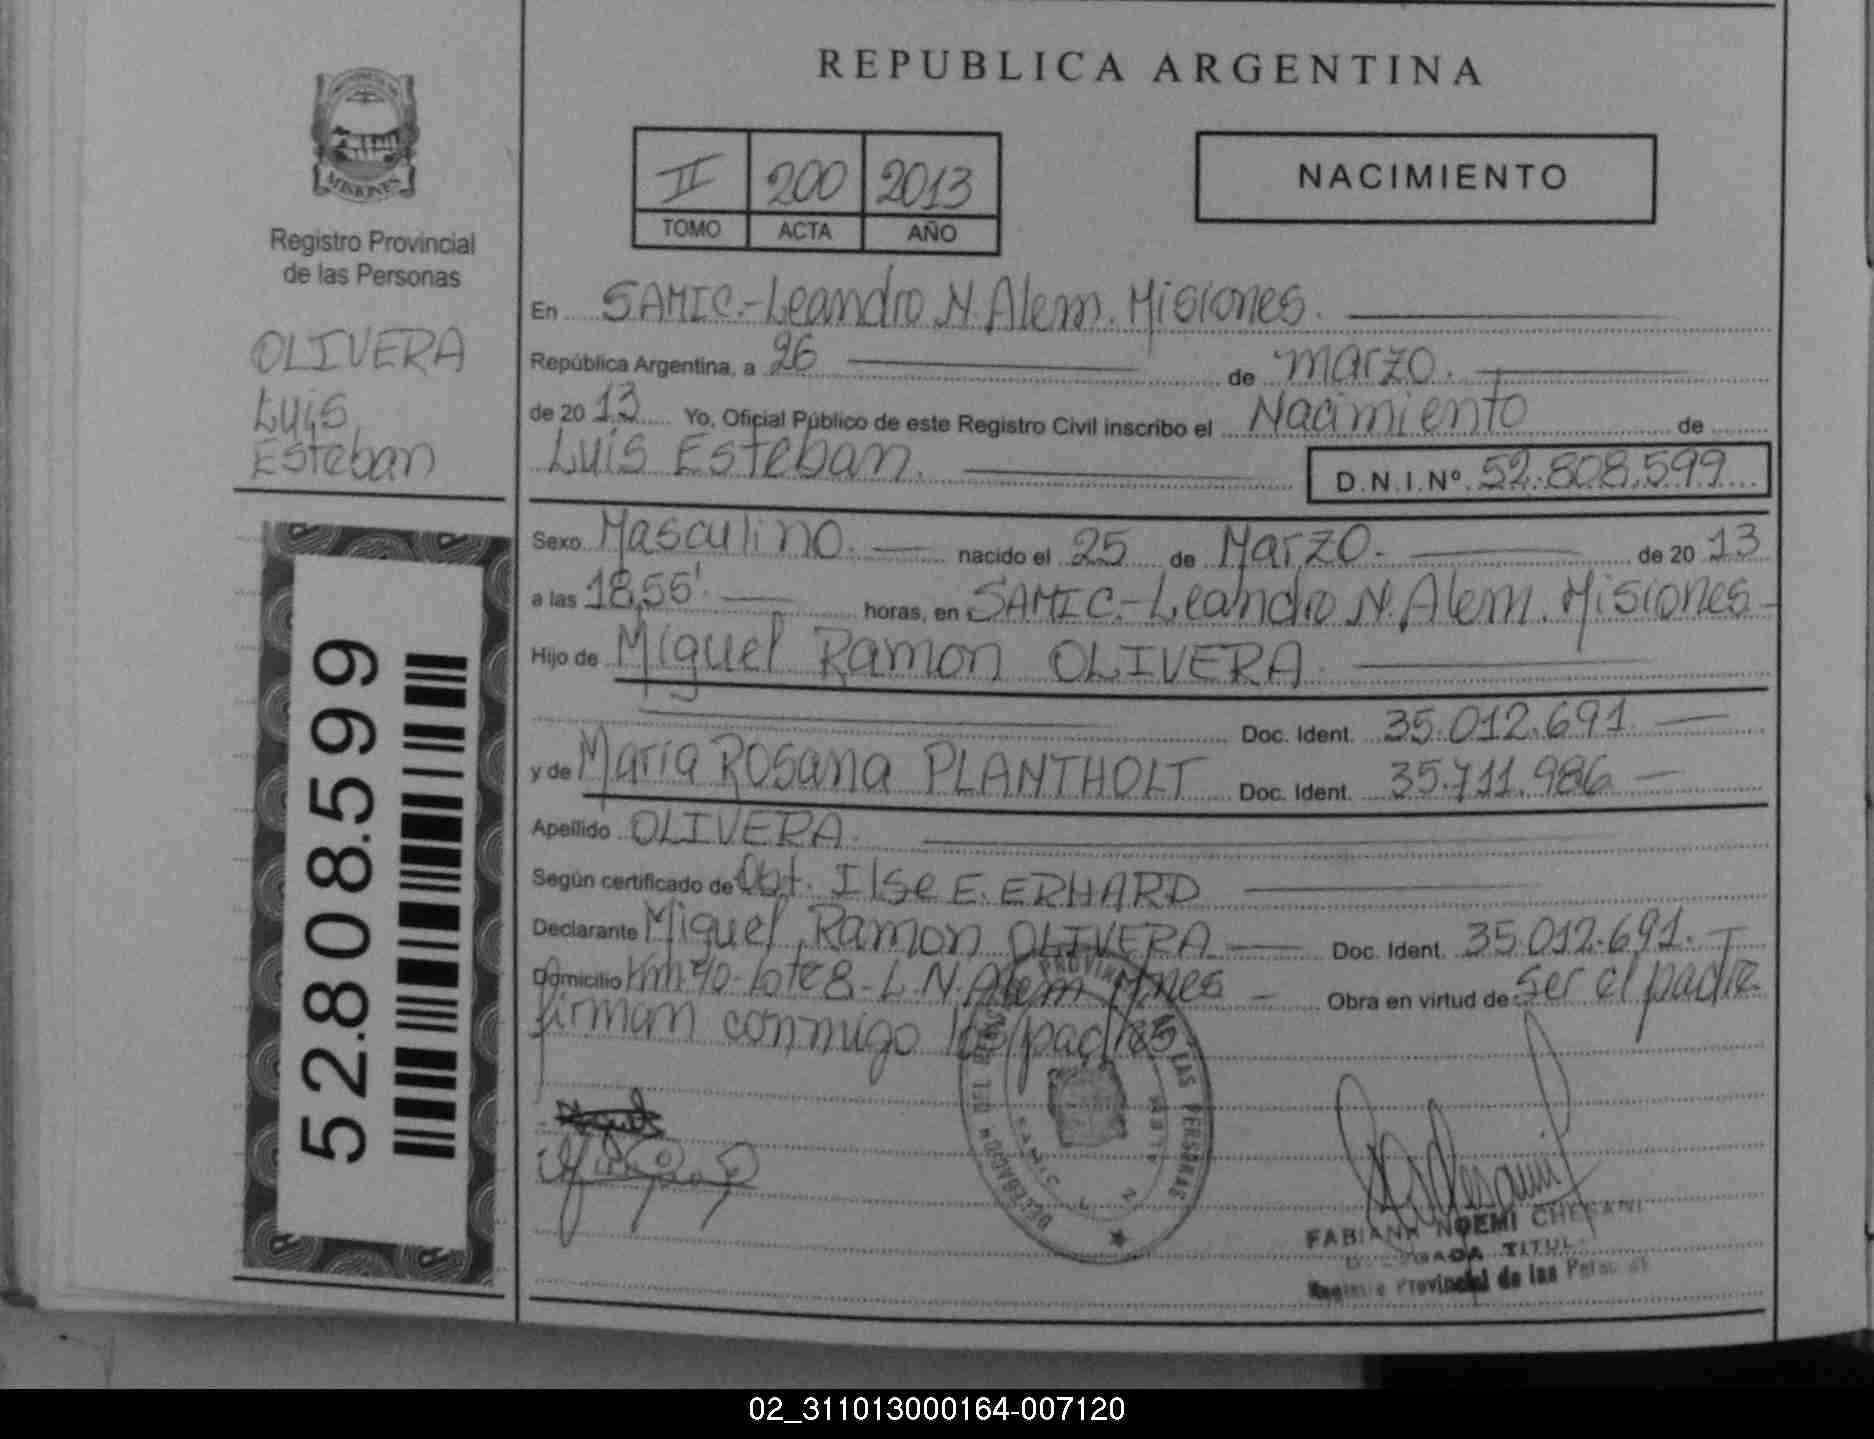 REPUBLICA ARGENTINA
MISIONES
Registro Provincial
de las Personas
OLIVERA
Luis
Esteban
52.808.599
II 200 2013
TOMO ACTA AÑO
NACIMIENTO
En SAMIC.-Leandro N. Alem. Misiones.
República Argentina, a 26 de marzo.
de 20 13 Yo, Oficial Público de este Registro Civil inscribo el Nacimiento de
Luis Esteban. D.N.I.Nº. 52.808.599
Sexo Masculino. nacido el 25 de Marzo. de 20 13
a las 18,55' horas, en SAMIC.-Leandro N. Alem. Misiones-
Hijo de Miguel Ramon OLIVERA.
Doc. Ident. 35.012.691.
y de Maria Rosana PLANTHOLT Doc. Ident. 35.711.986
Apellido OLIVERA.
Según certificado de Obt. Ilse E. ERHARD
Declarante Miguel Ramon OLIVERA Doc. Ident. 35.012.691.
Domicilio Km 40-Lote 8-L.N. Alem Mnes Obra en virtud de ser el padre
firman conmigo los padres
LAS PERSONAS
FABIANA NOEMI CHESANI
TITUL
Registro Provincial de las Personas
02_311013000164-007120